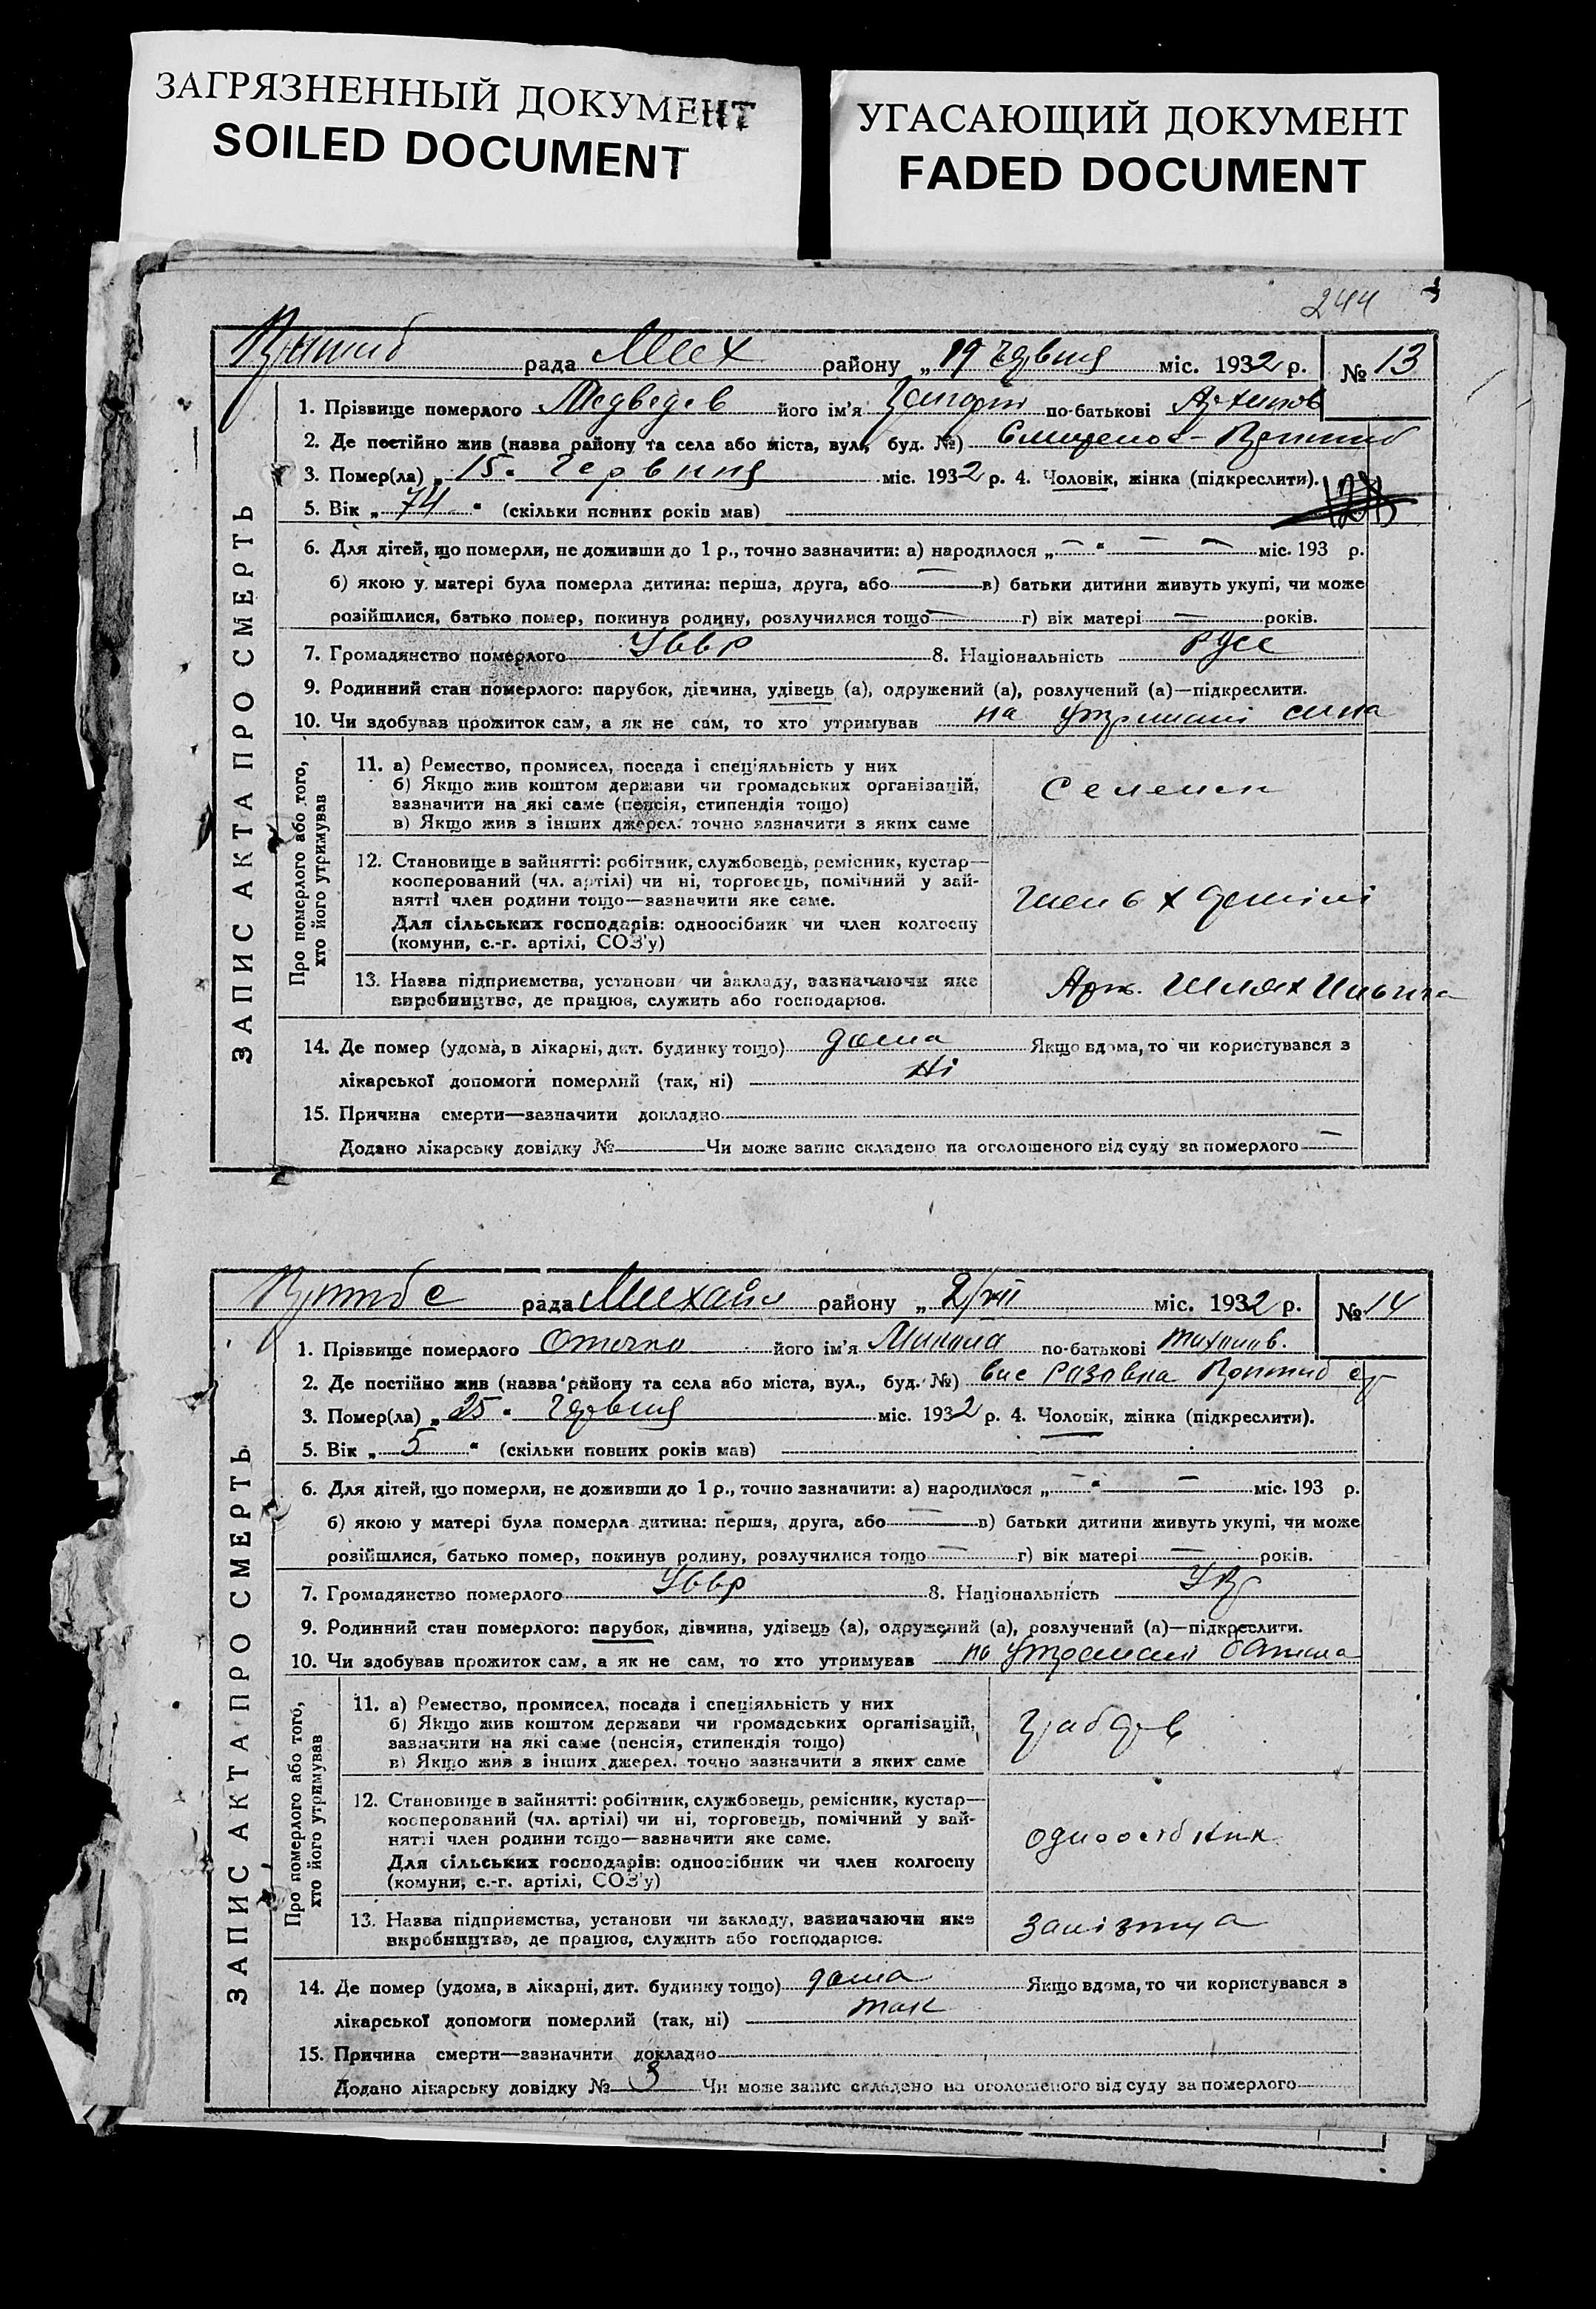 ЗАГРЯЗНЕННЫЙ ДОКУМЕНТ
SOILED DOCUMENT
УГАСАЮЩИЙ ДОКУМЕНТ
FADED DOCUMENT
244
ЗАПИС АКТА ПРО СМЕРТЬ
рада Мих району „19 червня міс. 1932 р. № 13
1. Прізвище померлого Медведев його ім'я Григорій по-батькові Архипов
2. Де постійно жив (назва району та села або міста, вул., буд. №)
3. Помер(ла) „15" Червння міс. 1932 р. 4. Чоловік, жінка (підкреслити).
5. Вік „74" (скільки повних років мав)
6. Для дітей, що померли, не доживши до 1 р., точно зазначити: а) народилося „—" — — міс. 193 р.
б) якою у матері була померла дитина: перша, друга, або — в) батьки дитини живуть укупі, чи може
розійшлися, батько помер, покинув родину, розлучилися тощо — г) вік матері — років.
7. Громадянство померлого УССР 8. Національність русс
9. Родинний стан померлого: парубок, дівчина, удівець (а), одружений (а), розлучений (а)—підкреслити.
10. Чи здобував прожиток сам, а як не сам, то хто утримував на утримані сина
Про померлого або того,
хто його утримував
11. а) Ремество, промисел, посада і спеціяльність у них
б) Якщо жив коштом держави чи громадських організацій,
зазначити на які саме (пенсія, стипендія тощо)
в) Якщо жив з інших джерел. точно зазначити з яких саме
12. Становище в зайнятті: робітник, службовець, ремісник, кустар—
кооперований (чл. артілі) чи ні, торговець, помічний у зай-
нятті член родини тощо—зазначити яке саме.
Для сільських господарів: одноосібник чи член колгоспу
(комуни, с.-г. артілі, СОЗ'у)
член
13. Назва підприємства, установи чи закладу, зазначаючи яке
виробництво, де працює, служить або господарює.
Арт. Шлях Ильича
14. Де помер (удома, в лікарні, дит. будинку тощо) дома Якщо вдома, то чи користувався з
лікарської допомоги померлий (так, ні) Ні
15. Причина смерти—зазначити докладно
Додано лікарську довідку № Чи може запис складено на оголошеного від суду за померлого —
ЗАПИС АКТА ПРО СМЕРТЬ
рада Михайл району „2/VII міс. 1932 р. № 14
1. Прізвище померлого його ім'я Микола по-батькові Тихонов.
2. Де постійно жив (назва району та села або міста, вул., буд. №)
3. Помер(ла) „25" червня міс. 1932 р. 4. Чоловік, жінка (підкреслити).
5. Вік „5" (скільки повних років мав)
6. Для дітей, що померли, не доживши до 1 р., точно зазначити: а) народилося „—" — міс. 193 р.
б) якою у матері була померла дитина: перша, друга, або — в) батьки дитини живуть укупі, чи може
розійшлися, батько помер, покинув родину, розлучилися тощо — г) вік матері — років.
7. Громадянство померлого УССР 8. Національність Укр
9. Родинний стан померлого: парубок, дівчина, удівець (а), одружений (а), розлучений (а)—підкреслити.
10. Чи здобував прожиток сам, а як не сам, то хто утримував на утримані батька
Про померлого або того,
хто його утримував
11. а) Ремество, промисел, посада і спеціяльність у них
б) Якщо жив коштом держави чи громадських організацій,
зазначити на які саме (пенсія, стипендія тощо)
в) Якщо жив з інших джерел. точно зазначити з яких саме
12. Становище в зайнятті: робітник, службовець, ремісник, кустар—
кооперований (чл. артілі) чи ні, торговець, помічний у зай-
нятті член родини тощо—зазначити яке саме.
Для сільських господарів: одноосібник чи член колгоспу
(комуни, с.-г. артілі, СОЗ'у)
одноосібник
13. Назва підприємства, установи чи закладу, зазначаючи яке
виробництво, де працює, служить або господарює.
залізниця
14. Де помер (удома, в лікарні, дит. будинку тощо) дома Якщо вдома, то чи користувався з
лікарської допомоги померлий (так, ні) так
15. Причина смерти—зазначити докладно
Додано лікарську довідку № 3 Чи може запис складено на оголошеного від суду за померлого